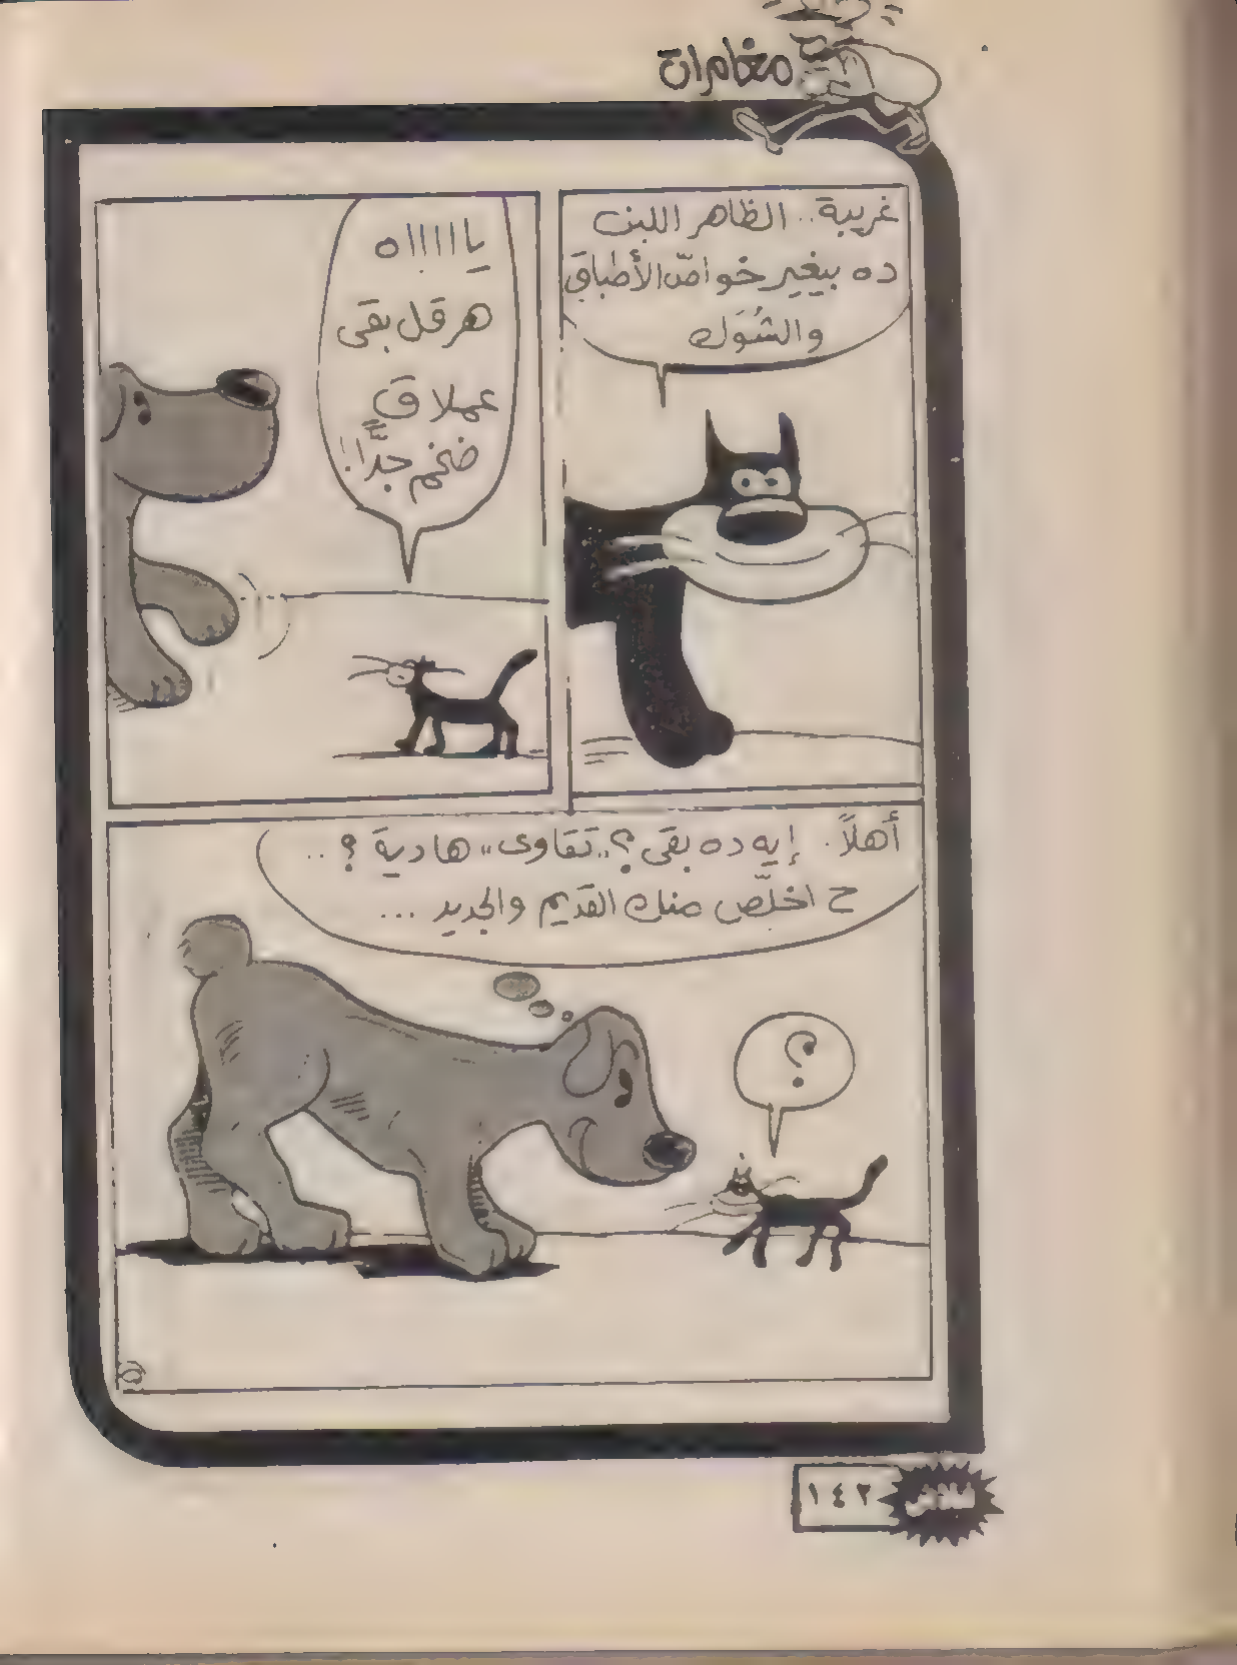 مغامرات
غريبة.. الظاهر اللبن
ده بيغير خواصّ الأطباق
والشُوَك
يااااااه
هرقل بقى
عملاق
ضخم جدًّا!!
أهلاً. إيه ده بقى؟.. تقاوى،، هادية؟..
ح اخلّص منك القديم والجديد ...
؟
فلاش
١٤٢